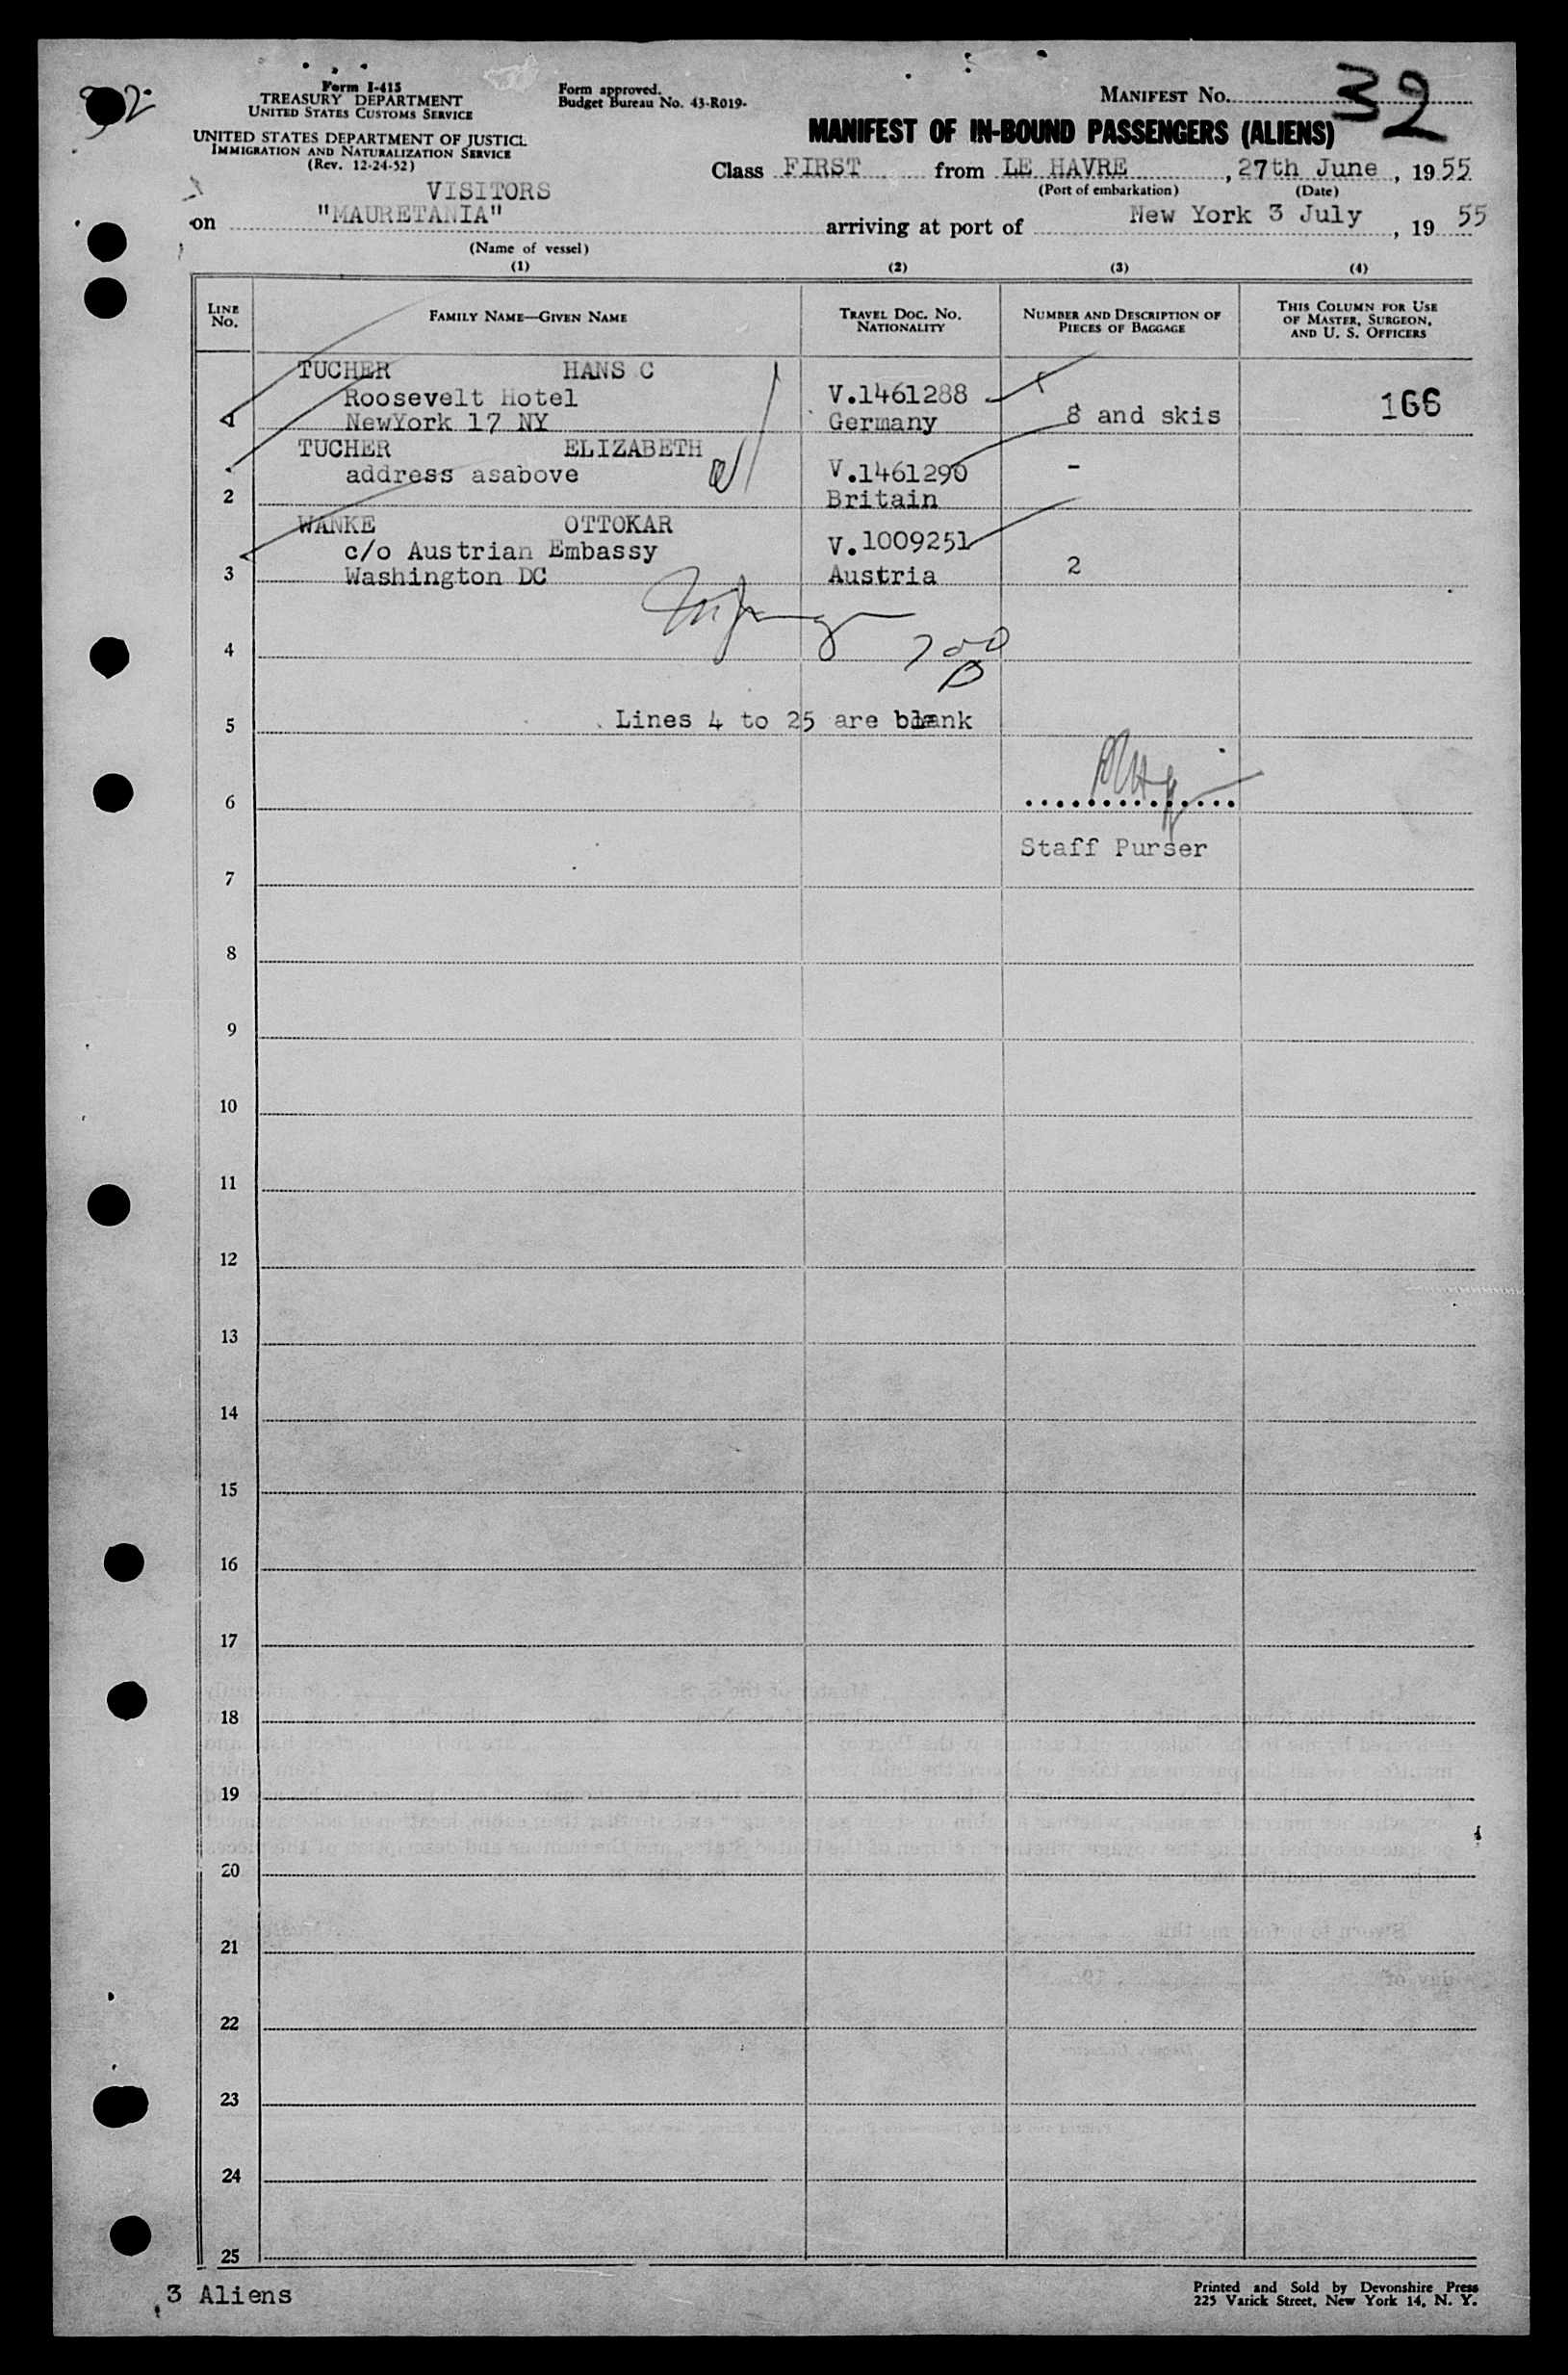 32
Form I-415
TREASURY DEPARTMENT
UNITED STATES CUSTOMS SERVICE
UNITED STATES DEPARTMENT OF JUSTICE
IMMIGRATION AND NATURALIZATION SERVICE
(Rev. 12-24-52)
Form approved.
Budget Bureau No. 43-R019-
MANIFEST No. 32
MANIFEST OF IN-BOUND PASSENGERS (ALIENS)
Class FIRST from LE HAVRE, 27th June, 1955
(Port of embarkation) (Date)
VISITORS
on "MAURETANIA" arriving at port of New York 3 July, 19 55
(Name of vessel)
(1) (2) (3) (4)
LINE No. FAMILY NAME—GIVEN NAME TRAVEL DOC. No. NATIONALITY NUMBER AND DESCRIPTION OF PIECES OF BAGGAGE THIS COLUMN FOR USE OF MASTER, SURGEON, AND U. S. OFFICERS
TUCHER HANS C
Roosevelt Hotel V.1461288
1 NewYork 17 NY Germany 8 and skis 166
TUCHER ELIZABETH
address asabove V.1461290 -
2 Britain
WANKE OTTOKAR
c/o Austrian Embassy V.1009251
3 Washington DC Austria 2
4
700
Lines 4 to 25 are blank
5
6
Staff Purser
7
8
9
10
11
12
13
14
15
16
17
18
19
20
21
22
23
24
25
3 Aliens
Printed and Sold by Devonshire Press
225 Varick Street, New York 14, N. Y.